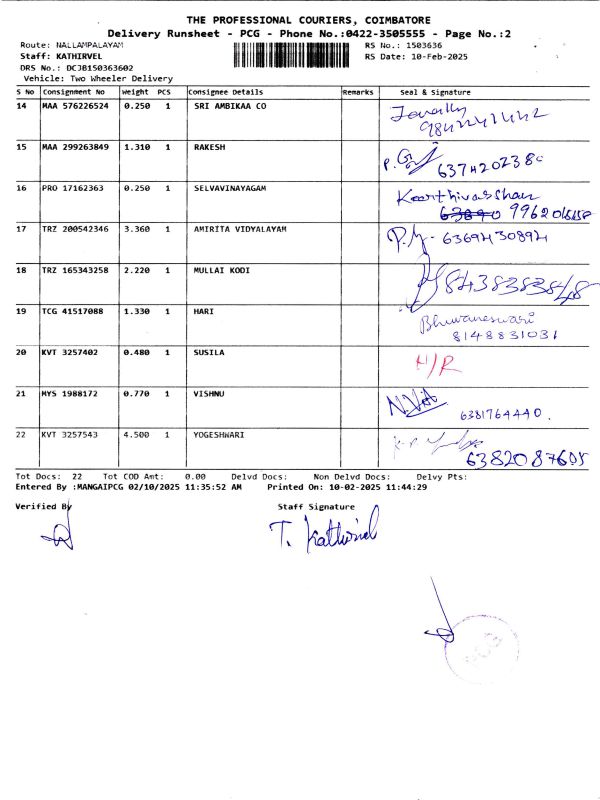 THE PROFESSIONAL COURIERS, COIMBATORE
Delivery Runsheet - PCG - Phone No.:0422-3505555 - Page No.:2
Route: NALLAMPALAYAM RS No.: 1503636
Staff: KATHIRVEL RS Date: 10-Feb-2025
DRS No.: DCJB150363602
Vehicle: Two Wheeler Delivery
S No Consignment No Weight PCS Consignee Details Remarks Seal & Signature
14 MAA 576226524 0.250 1 SRI AMBIKAA CO
15 MAA 299263849 1.310 1 RAKESH
637420238
16 PRO 17162363 0.250 1 SELVAVINAYAGAM Keerthivasshan
99620
17 TRZ 200542346 3.360 1 AMIRITA VIDYALAYAM 6369430894
18 TRZ 165343258 2.220 1 MULLAI KODI 8438383848
19 TCG 41517088 1.330 1 HARI Bhuvaneswari
8148831031
20 KVT 3257402 0.480 1 SUSILA N/R
21 MYS 1988172 0.770 1 VISHNU
6381764440.
22 KVT 3257543 4.500 1 YOGESHWARI
6382087605
Tot Docs: 22 Tot COD Amt: 0.00 Delvd Docs: Non Delvd Docs: Delvy Pts:
Entered By :MANGAIPCG 02/10/2025 11:35:52 AM Printed On: 10-02-2025 11:44:29
Verified By Staff Signature
T. Kathirvel
PCG